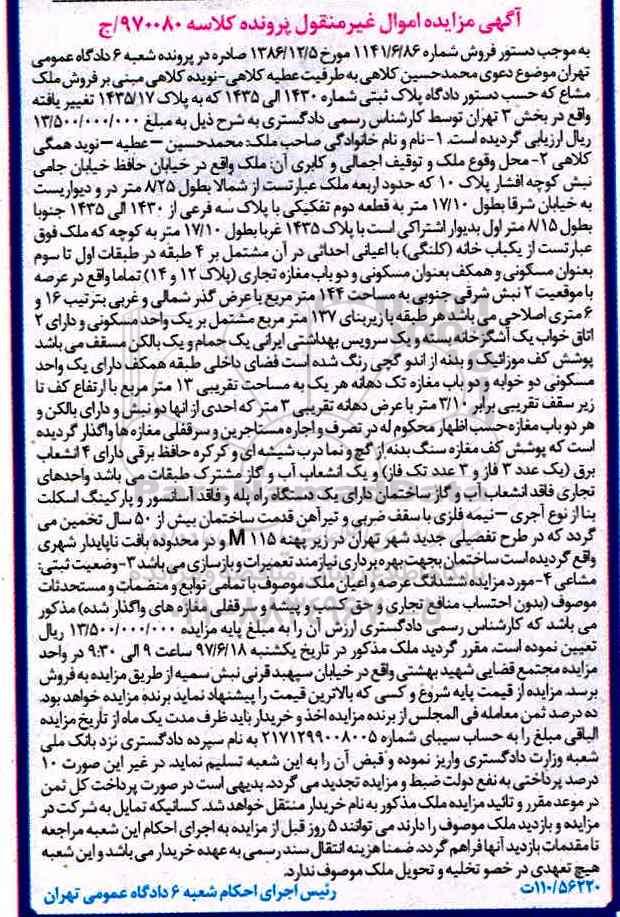 آگهی مزایده اموال غیرمنقول پرونده کلاسه ۹۷۰۰۸۰/ج
به موجب دستور فروش شماره ۱۱۴۱/۶/۸۶ مورخ ۱۳۸۶/۱۲/۵ صادره در پرونده شعبه ۶ دادگاه عمومی
تهران موضوع دعوی محمدحسین کلاهی به طرفیت عطیه کلاهی-نویده کلاهی مبنی بر فروش ملک
مشاع که حسب دستور دادگاه پلاک ثبتی شماره ۱۴۳۰ الی ۱۴۳۵ که به پلاک ۱۴۳۵/۱۷ تغییر یافته
واقع در بخش ۳ تهران توسط کارشناس رسمی دادگستری به شرح ذیل به مبلغ ۱۳/۵۰۰/۰۰۰/۰۰۰
ریال ارزیابی گردیده است. ۱-نام و نام خانوادگی صاحب ملک: محمدحسین –عطیه –نوید همگی
کلاهی ۲- محل وقوع ملک و توقیف اجمالی و کابری آن: ملک واقع در خیابان حافظ خیابان جامی
نبش کوچه افشار پلاک ۱۰ که حدود اربعه ملک عبارتست از شمالا بطول ۸/۲۵ متر در و دیواریست
به خیابان شرقا بطول ۱۷/۱۰ متر به قطعه دوم تفکیکی با پلاک سه فرعی از ۱۴۳۰ الی ۱۴۳۵ جنوبا
بطول ۸/۱۵ متر اول بدیوار اشتراکی است با پلاک ۱۴۳۵ غربا بطول ۱۷/۱۰ متر به کوچه که ملک فوق
عبارتست از یکباب خانه (کلنگی) با اعیانی احداثی در آن مشتمل بر ۴ طبقه در طبقات اول تا سوم
بعنوان مسکونی و همکف بعنوان مسکونی و دو باب مغازه تجاری (پلاک ۱۲ و ۱۴) تماما واقع در عرصه
با موقعیت ۲ نبش شرقی جنوبی به مساحت ۱۴۴ متر مربع با عرض گذر شمالی و غربی بترتیب ۱۶ و
۶ متری اصلاحی می باشد هر طبقه با زیربنای ۱۳۷ متر مربع مشتمل بر یک واحد مسکونی و دارای ۲
اتاق خواب یک آشگزخانه بسته و یک سرویس بهداشتی ایرانی یک حمام و یک بالکن مسقف می باشد
پوشش کف موزائیک و بدنه از اندو گچی رنگ شده است فضای داخلی طبقه همکف دارای یک واحد
مسکونی دو خوابه و دو باب مغازه تک دهانه هر یک به مساحت تقریبی ۱۳ متر مربع با ارتفاع کف تا
زیر سقف تقریبی برابر ۳/۱۰ متر با عرض دهانه تقریبی ۳ متر که احدی از انها دو نبش و دارای بالکن و
هر دو باب مغازه حسب اظهار محکوم له در تصرف و اجاره مستاجرین و سرقفلی مغازه ها واگذار گردیده
است که پوشش کف مغازه سنگ بدنه از گچ و نما درب شیشه ای و کرکره حافظ برقی دارای ۴ انشعاب
برق (یک عدد ۳ فاز و ۳ عدد تک فاز) و یک انشعاب آب و گاز مشترک طبقات می باشد واحدهای
تجاری فاقد انشعاب آب و گاز ساختمان دارای یک دستگاه راه پله و فاقد آسانسور و پارکینگ اسکلت
بنا از نوع آجری –نیمه فلزی با سقف ضربی و تیرآهن قدمت ساختمان بیش از ۵۰ سال تخمین می
گردد که در طرح تفصیلی جدید شهر تهران در زیر پهنه M ۱۱۵ و در محدوده بافت ناپایدار شهری
واقع گردیده است ساختمان بجهت بهره برداری نیازمند تعمیرات و بازسازی می باشد ۳-وضعیت ثبتی:
مشاعی ۴-مورد مزایده ششدانگ عرصه و اعیان ملک موصوف با تمامی توابع و منضمات و مستحدثات
موصوف (بدون احتساب منافع تجاری و حق کسب و پیشه و سرقفلی مغازه های واگذار شده) مذکور
می باشد که کارشناس رسمی دادگستری ارزش آن را به مبلغ پایه مزایده ۱۳/۵۰۰/۰۰۰/۰۰۰ ریال
تعیین نموده است. مقرر گردید ملک مذکور در تاریخ یکشنبه ۹۷/۶/۱۸ ساعت ۹ الی ۹:۳۰ در واحد
مزایده مجتمع قضایی شهید بهشتی واقع در خیابان سپهبد قرنی نبش سمیه از طریق مزایده به فروش
برسد. مزایده از قیمت پایه شروع و کسی که بالاترین قیمت را پیشنهاد نماید برنده مزایده خواهد بود.
ده درصد ثمن معامله فی المجلس از برنده مزایده اخذ و خریدار باید ظرف مدت یک ماه از تاریخ مزایده
الباقی مبلغ را به حساب سیبای شماره ۲۱۷۱۲۹۹۰۰۸۰۰۵ به نام سپرده دادگستری نزد بانک ملی
شعبه وزارت دادگستری واریز نموده و قبض آن را به این شعبه تسلیم نماید. در غیر این صورت ۱۰
درصد پرداختی به نفع دولت ضبط و مزایده تجدید می گردد. بدیهی است در صورت پرداخت کل ثمن
در موعد مقرر و تائید مزایده ملک مذکور به نام خریدار منتقل خواهد شد. کسانیکه تمایل به شرکت در
مزایده و بازدید ملک موصوف را دارند می توانند ۵ روز قبل از مزایده به اجرای احکام این شعبه مراجعه
تا مقدمات بازدید آنها فراهم گردد. ضمنا هزینه انتقال سند رسمی به عهده خریدار می باشد و این شعبه
هیچ تعهدی در خصو تخلیه و تحویل ملک موصوف ندارد.
۱۱۰/۵۶۲۲۰ت رئیس اجرای احکام شعبه ۶ دادگاه عمومی تهران